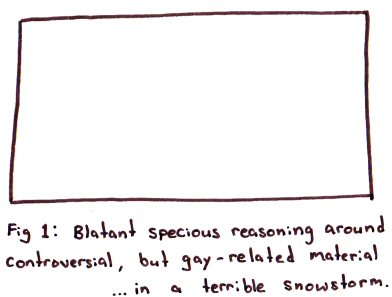 Fig 1: Blatant specious reasoning around
controversial, but gay-related material
...in a terrible snowstorm.